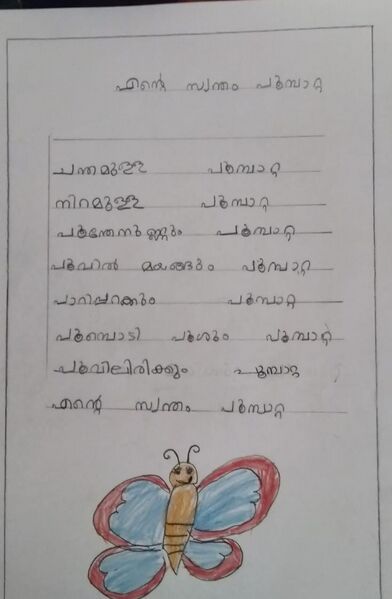 എന്റെ സ്വന്തം പൂമ്പാറ്റ
ചന്തമുള്ള പൂമ്പാറ്റ
നിറമുള്ള പൂമ്പാറ്റ
പൂന്തേനുണ്ണും പൂമ്പാറ്റ
പൂവിൽ മയങ്ങും പൂമ്പാറ്റ
പാറിപ്പറക്കും പൂമ്പാറ്റ
പൂമ്പൊടി പൂശും പൂമ്പാറ്റ
പൂവിലിരിക്കും പൂമ്പാറ്റ
എന്റെ സ്വന്തം പൂമ്പാറ്റ